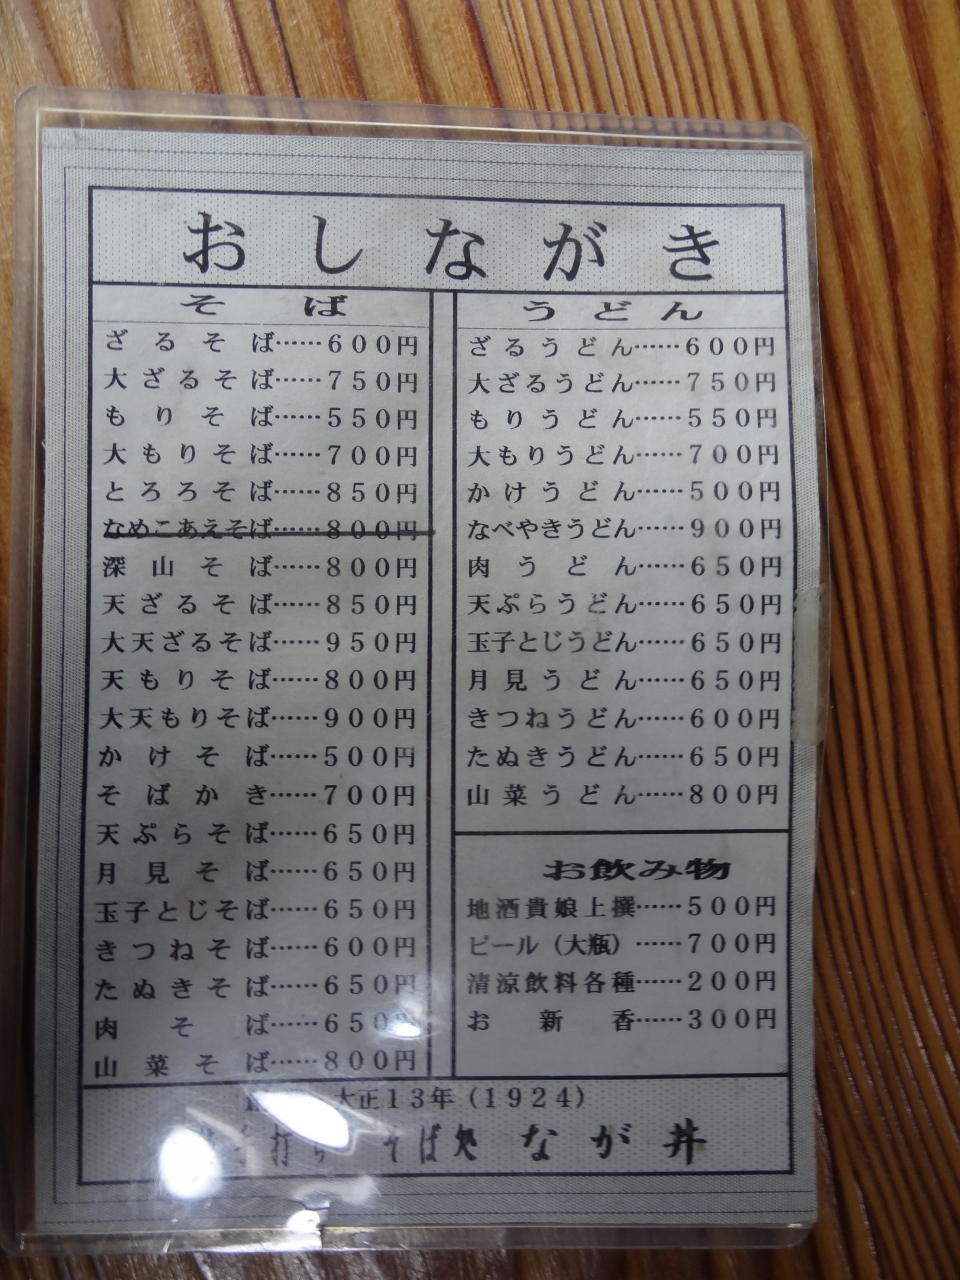 おしながき
そば
ざるそば……600円
大ざるそば……750円
もりそば……550円
大もりそば……700円
とろろそば……850円
なめこあえそば……800円
深山そば……800円
天ざるそば……850円
大天ざるそば……950円
天もりそば……800円
大天もりそば……900円
かけそば……500円
そばがき……700円
天ぷらそば……650円
月見そば……650円
玉子とじそば……650円
きつねそば……600円
たぬきそば……650円
肉そば……650円
山菜そば……800円
うどん
ざるうどん……600円
大ざるうどん……750円
もりうどん……550円
大もりうどん……700円
かけうどん……500円
なべやきうどん……900円
肉うどん……650円
天ぷらうどん……650円
玉子とじうどん……650円
月見うどん……650円
きつねうどん……600円
たぬきうどん……650円
山菜うどん……800円
お飲み物
地酒貴娘上撰……500円
ビール（大瓶）……700円
清涼飲料各種……200円
お新香……300円
大正13年（1924）
手打ち そば処 なが井